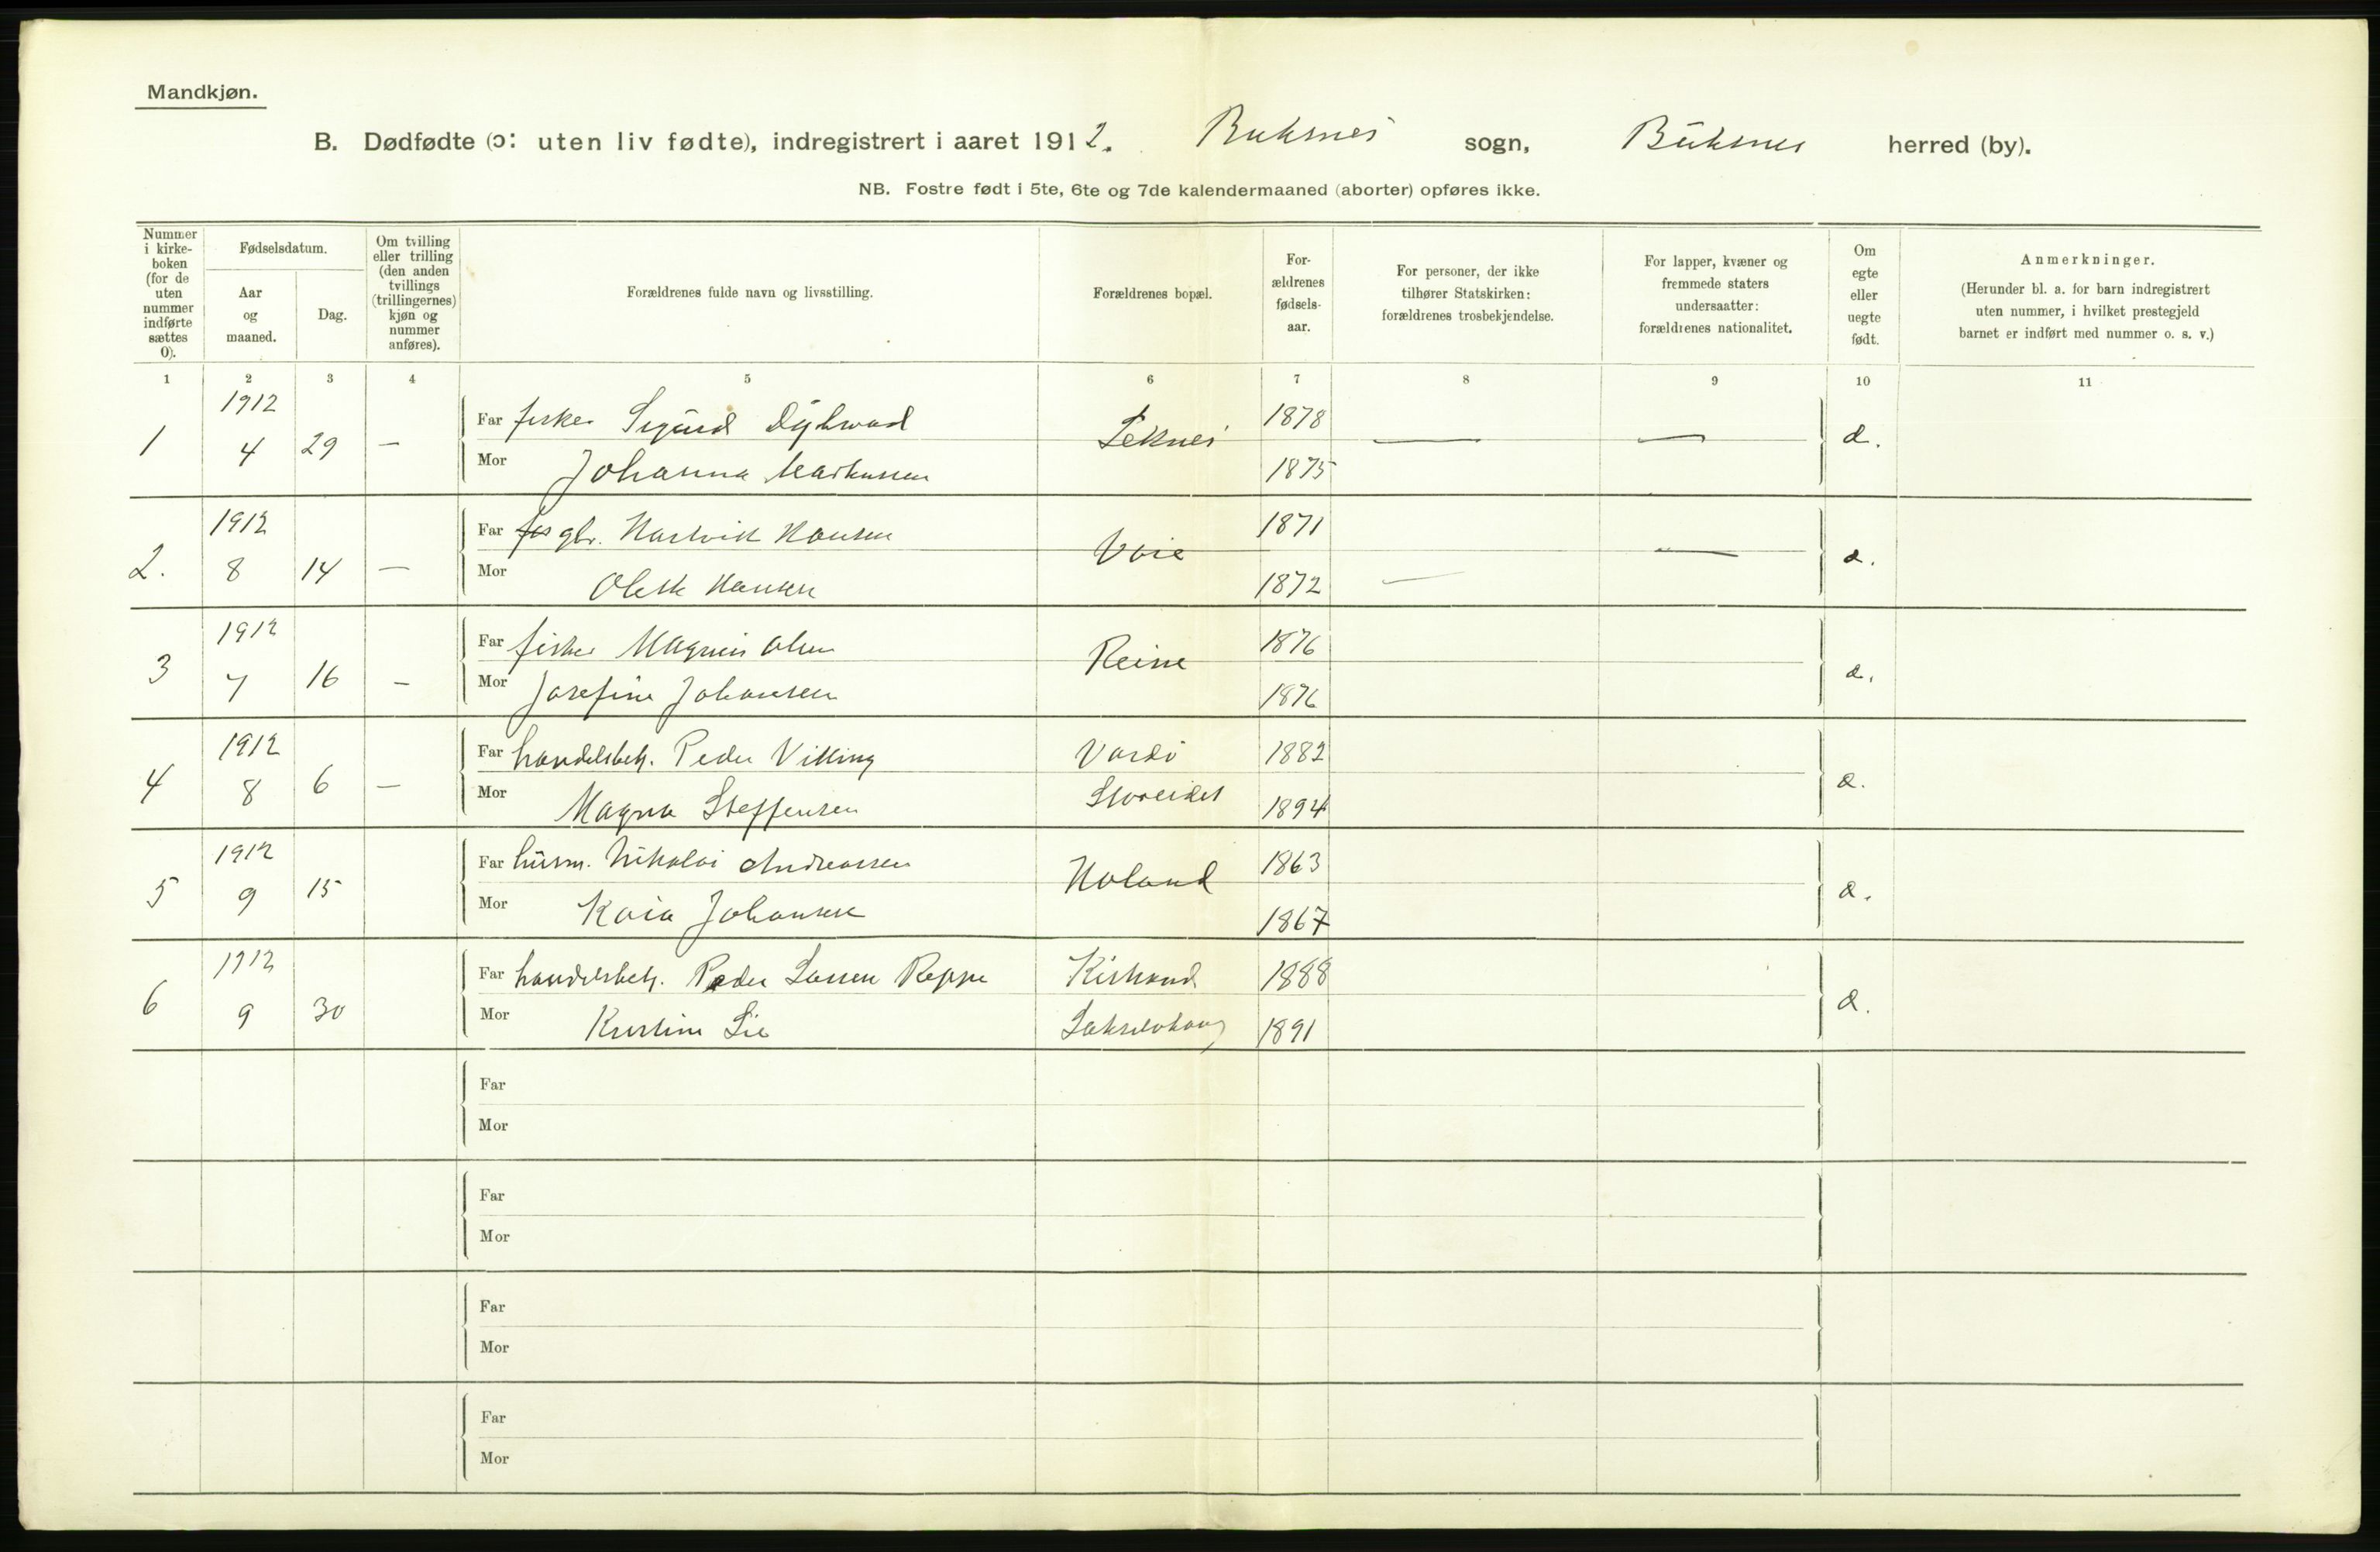 Mandkjøn.
B. Dødfødte (ɔ: uten liv fødte), indregistrert i aaret 1912. Buksnes sogn, Buksnes herred (by).
NB. Fostre født i 5te, 6te og 7de kalendermaaned (aborter) opføres ikke.
Nummer i kirkeboken (for de uten nummer indførte sættes 0).
Fødselsdatum.
Aar og maaned.
Dag.
Om tvilling eller trilling (den anden tvillings (trillingernes) kjøn og nummer anføres).
Forældrenes fulde navn og livsstilling.
Forældrenes bopæl.
Forældrenes fødselsaar.
For personer, der ikke tilhører Statskirken: forældrenes trosbekjendelse.
For lapper, kvæner og fremmede staters undersaatter: forældrenes nationalitet.
Om egte eller uegte født.
Anmerkninger.
(Herunder bl. a. for barn indregistrert uten nummer, i hvilket prestegjeld barnet er indført med nummer o. s. v.)
1 2 3 4 5 6 7 8 9 10 11
1912 Far fisker Sigurd 1878
1 4 29 — Leknes — —
Mor Johanna Markussen 1875
1912 Far gbr. Hartvik Hansen 1871
2. 8 14 — — —
Mor Hansen 1872
1912 Far fisker Magnus Olsen 1876
3 7 16 — Reine
Mor Josefine Johansen 1876
1912 Far handelsbetj. Peder Viking Vardö 1882
4 8 6 —
Mor Magna Steffensen Storeidet 1894
1912 Far husm. Nikolai Andreassen 1863
5 9 15 Holand
Mor Kaia Johansen 1867
1912 Far handelsbetj. Peder Larsen Reppe 1888
6 9 30
Mor Kristine Lie 1891
Far
Mor
Far
Mor
Far
Mor
Far
Mor